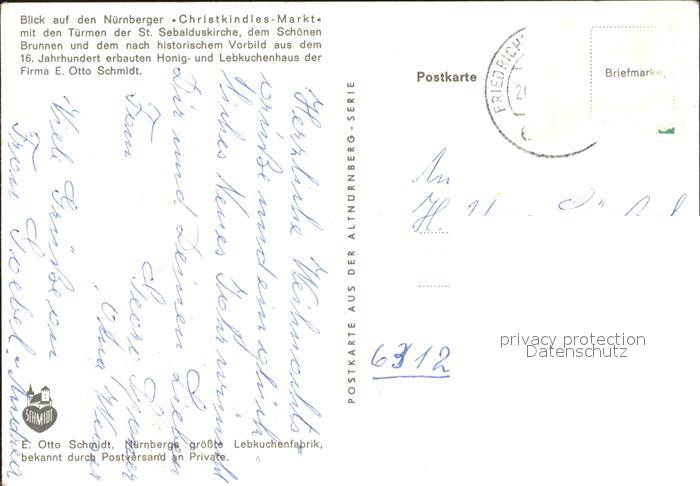 Blick auf den Nürnberger »Christkindles-Markt«
mit den Türmen der St. Sebalduskirche, dem Schönen
Brunnen und dem nach historischem Vorbild aus dem
16. Jahrhundert erbauten Honig- und Lebkuchenhaus der
Firma E. Otto Schmidt.
Herzliche Weihnachts-
grüße und ein glück-
liches Neues Jahr wünscht
Dir und Deinen Lieben
Viele Grüße an
Frau Goebel
SCHMIDT
E. Otto Schmidt, Nürnbergs größte Lebkuchenfabrik,
bekannt durch Postversand an Private.
POSTKARTE AUS DER ALTNÜRNBERG-SERIE
Postkarte
FRIEDRICH
Briefmarke
An
6312
privacy protection
Datenschutz